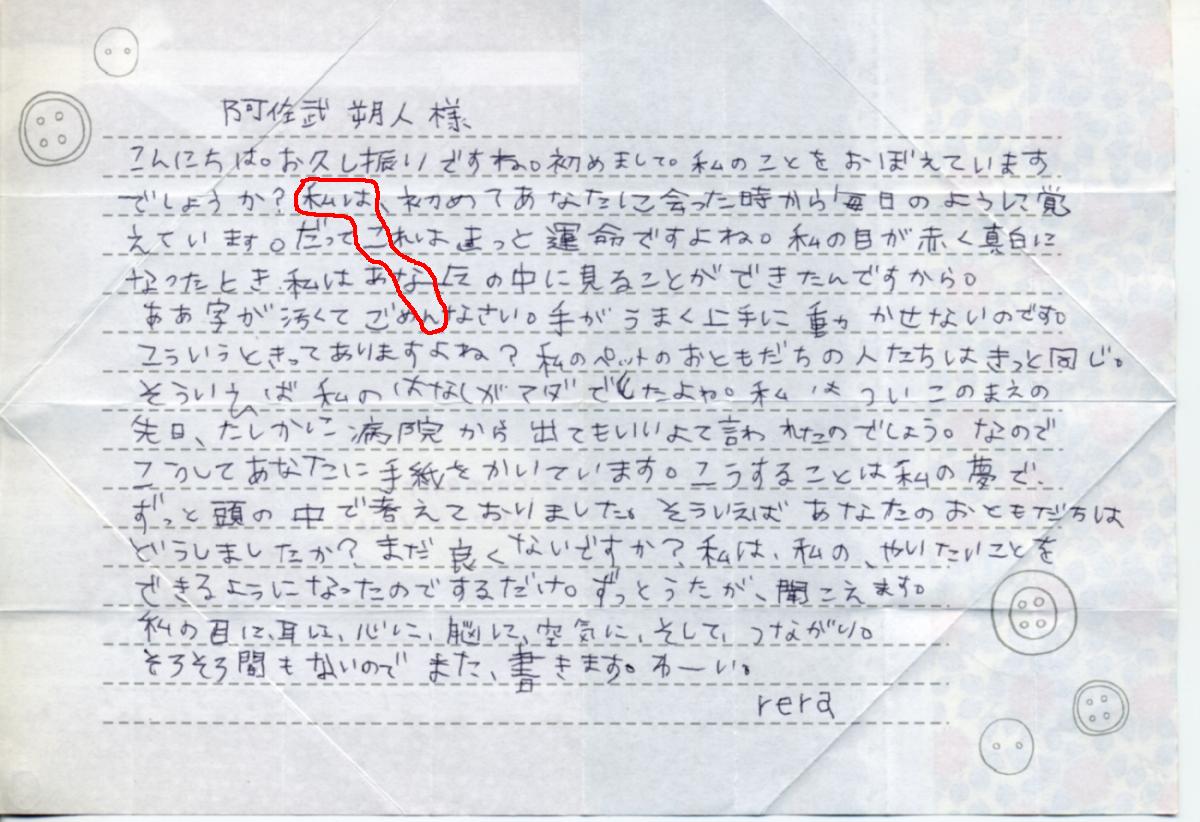 阿佐武 朔人 様
こんにちは。お久し振りですね。初めまして。私のことをおぼえています
でしょうか?私は、初めてあなたに会った時から毎日のようして覚
えています。だってこれはきっと運命ですよね。私の目が赤く真白に
なったとき私はあなたの中に見ることができたんですから。
ああ字が汚くてごめんなさい。手がうまく上手に重かかせないのです。
こういうときってありますよね?私のペットのおともだちの人たちはきっと同じ。
そういえば私のはなしがマダでしたよね。私はついこのまえの
先日、たしかに病院から出てもいいよて言われたのでしょう。なので
こうしてあなたに手紙をかいています。こうすることは私の夢で、
ずっと頭の中で考えておいました。そういえばあなたのおともだちは
どうしましたか?まだ良くないですか?私は、私の、やいたいことを
できるようになったのでするだけ。ずっとうたが、聞こえます。
私の目に、耳に、心に、脳に、空気に、そして、つながり。
そろそろ間もないのでまた、書きます。わーい。
rera